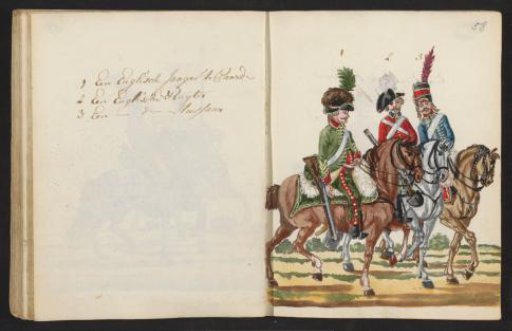 1 Een Englisch Jager te Paard
2 Een Englische Ruyter
3 Een — d — Hussaar
58
1 2 3